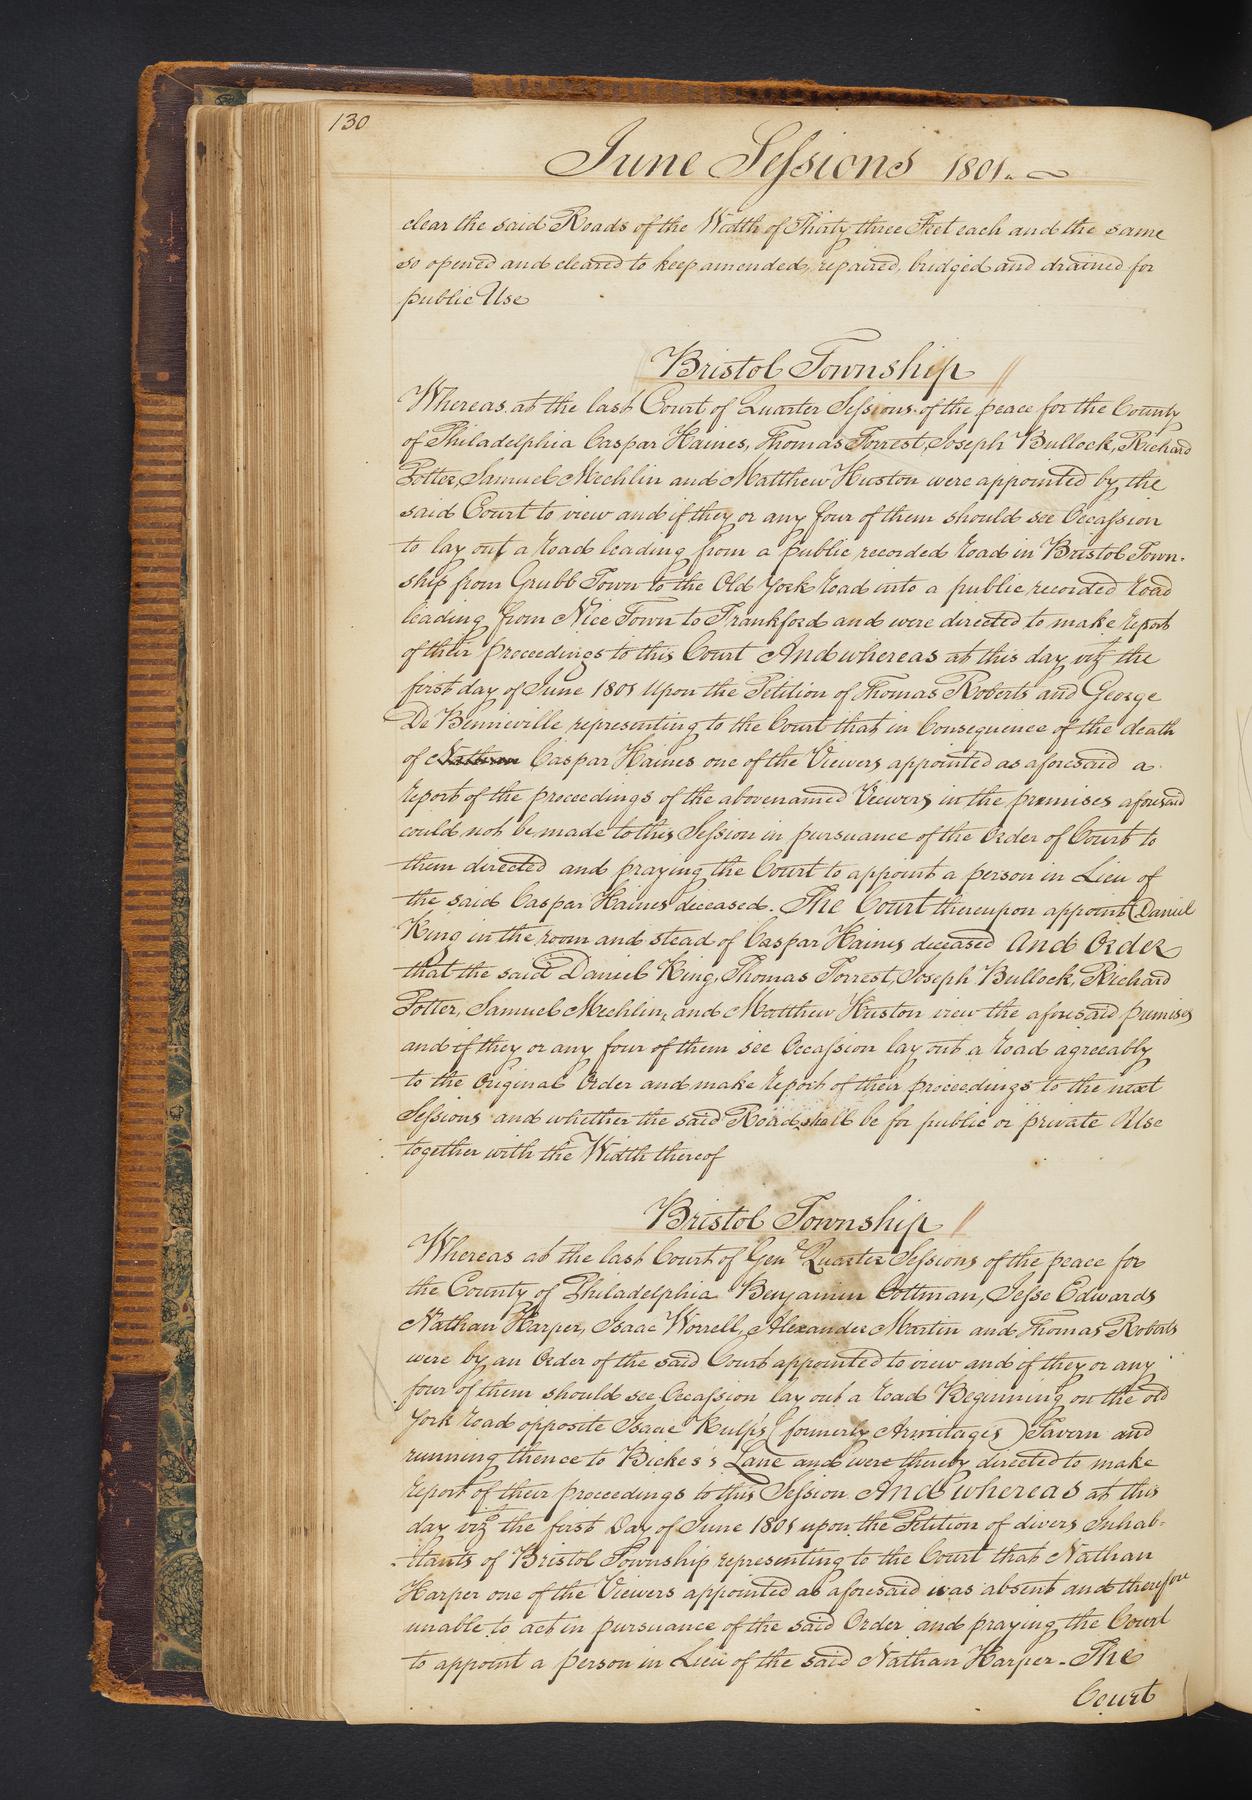 130
June Sessions 1801.
clear the said Roads of the Width of Thirty three Feet each and the same
so opened and cleared to keep amended, repaired, bridged and drained for
public Use
Bristol Township //
Whereas at the last Court of Quarter Sessions of the peace for the County
of Philadelphia Caspar Haines, Thomas Forrest, Joseph Bullock, Richard
Potter, Samuel Mechlin and Matthew Huston were appointed by the
said Court to view and if they or any four of them should see Occassion
to lay out a road leading from a public recorded road in Bristol Town-
ship from Grubb Town to the Old York road into a public recorded road
leading from Nice Town to Frankford and were directed to make report
of their proceedings to this Court And whereas at this day vizt the
first day of June 1801 Upon the Petition of Thomas Roberts and George
De Benneville representing to the Court that in Consequence of the death
of Nathan Caspar Haines one of the Viewers appointed as aforesaid a
report of the proceedings of the abovenamed Viewers in the premises aforesaid
could not be made to this Session in pursuance of the Order of Court to
them directed and praying the Court to appoint a person in Lieu of
the said Caspar Haines deceased. The Court thereupon appoint Daniel
King in the room and stead of Caspar Haines deceased And Order
that the said Daniel King, Thomas Forrest, Joseph Bullock, Richard
Potter, Samuel Mechlin, and Matthew Huston view the aforesaid premises
and if they or any four of them see Occassion lay out a road agreeably
to the Original Order and make report of their proceedings to the next
Sessions and whether the said Road shall be for public or private Use
together with the Width thereof
Bristol Township //
Whereas at the last Court of Genl Quarter Sessions of the peace for
the County of Philadelphia Benjamin Cottman, Jesse Edwards
Nathan Harper, Isaac Worrell, Alexander Martin and Thomas Roberts
were by an Order of the said Court appointed to view and if they or any
four of them should see Occassion lay out a road Beginning on the old
York road opposite Isaac Kulp's (formerly Armitages) Tavern and
running thence to Bickes's Lane and were thereby directed to make
report of their proceedings to this Session And whereas at this
day vizt the first Day of June 1801 upon the Petition of divers Inhab-
-itants of Bristol Township representing to the Court that Nathan
Harper one of the Viewers appointed as aforesaid was absent and therefore
unable to act in pursuance of the said Order and praying the Court
to appoint a person in Lieu of the said Nathan Harper - The
Court